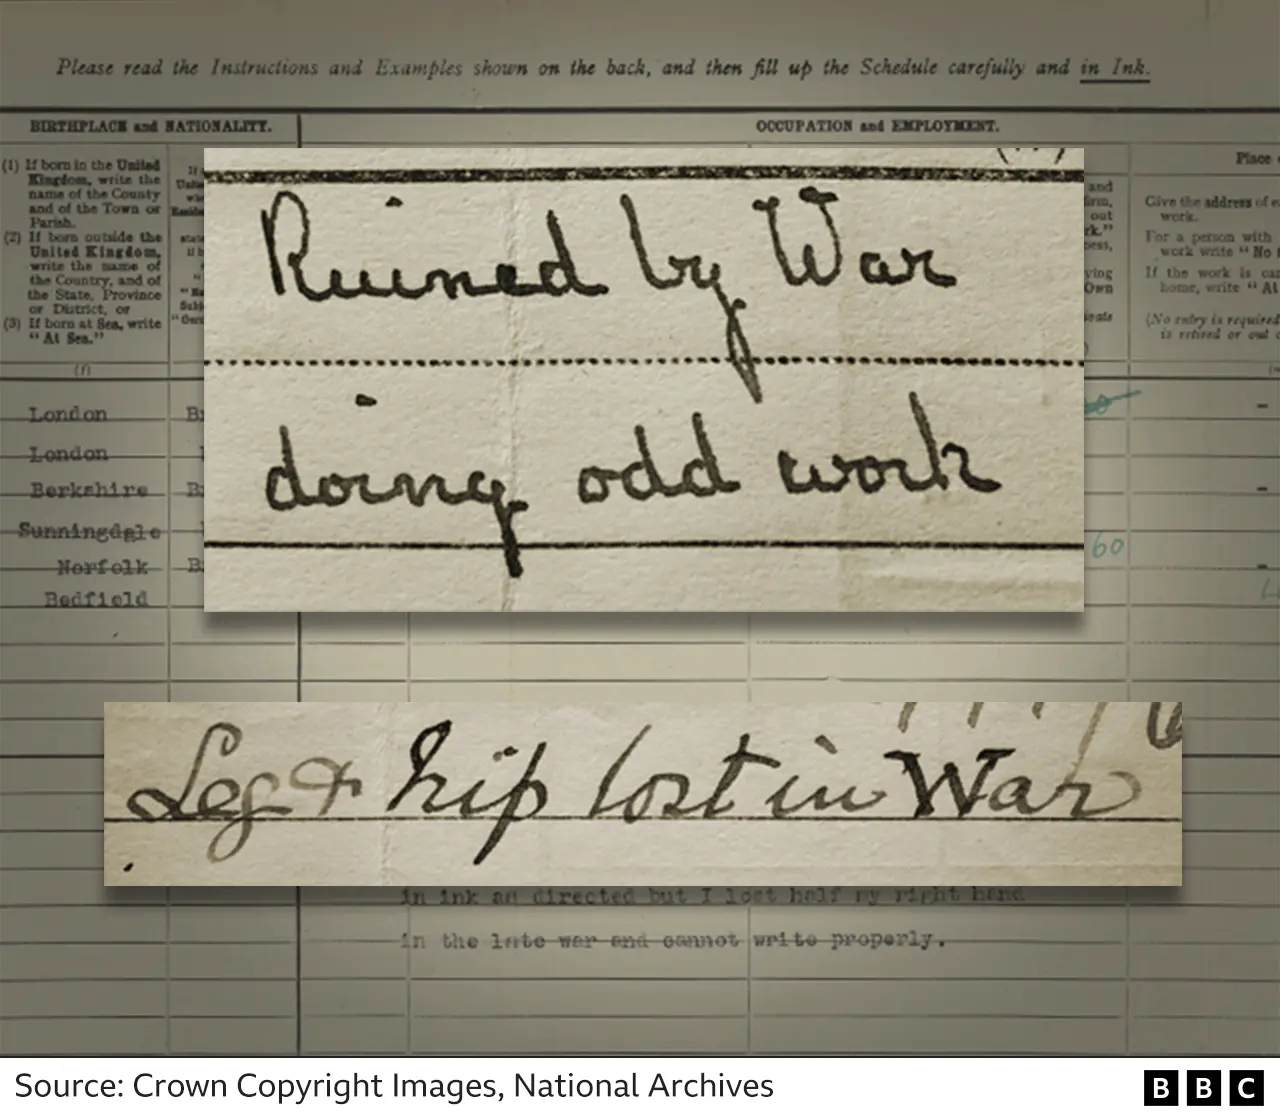 Please read the Instructions and Examples shown on the back, and then fill up the Schedule carefully and in Ink.
BIRTHPLACE and NATIONALITY.
OCCUPATION and EMPLOYMENT.
(1) If born in the United
Kingdom, write the
name of the County
and of the Town or
Parish.
(2) If born outside the
United Kingdom,
write the name of
the Country, and of
the State, Province
or District, or
(3) If born at Sea, write
"At Sea."
(f)
Place
Give the address of
work.
For a person with
work write "No
If the work is
home, write "At
(No entry is required
is retired or out
Ruined by War
doing odd work
London
London
Berkshire
Sunningdale
Norfolk
Bedfield
60
Leg & hip lost in War
in ink as directed but I lost half my right hand
in the late war and cannot write properly.
Source: Crown Copyright Images, National Archives
BBC